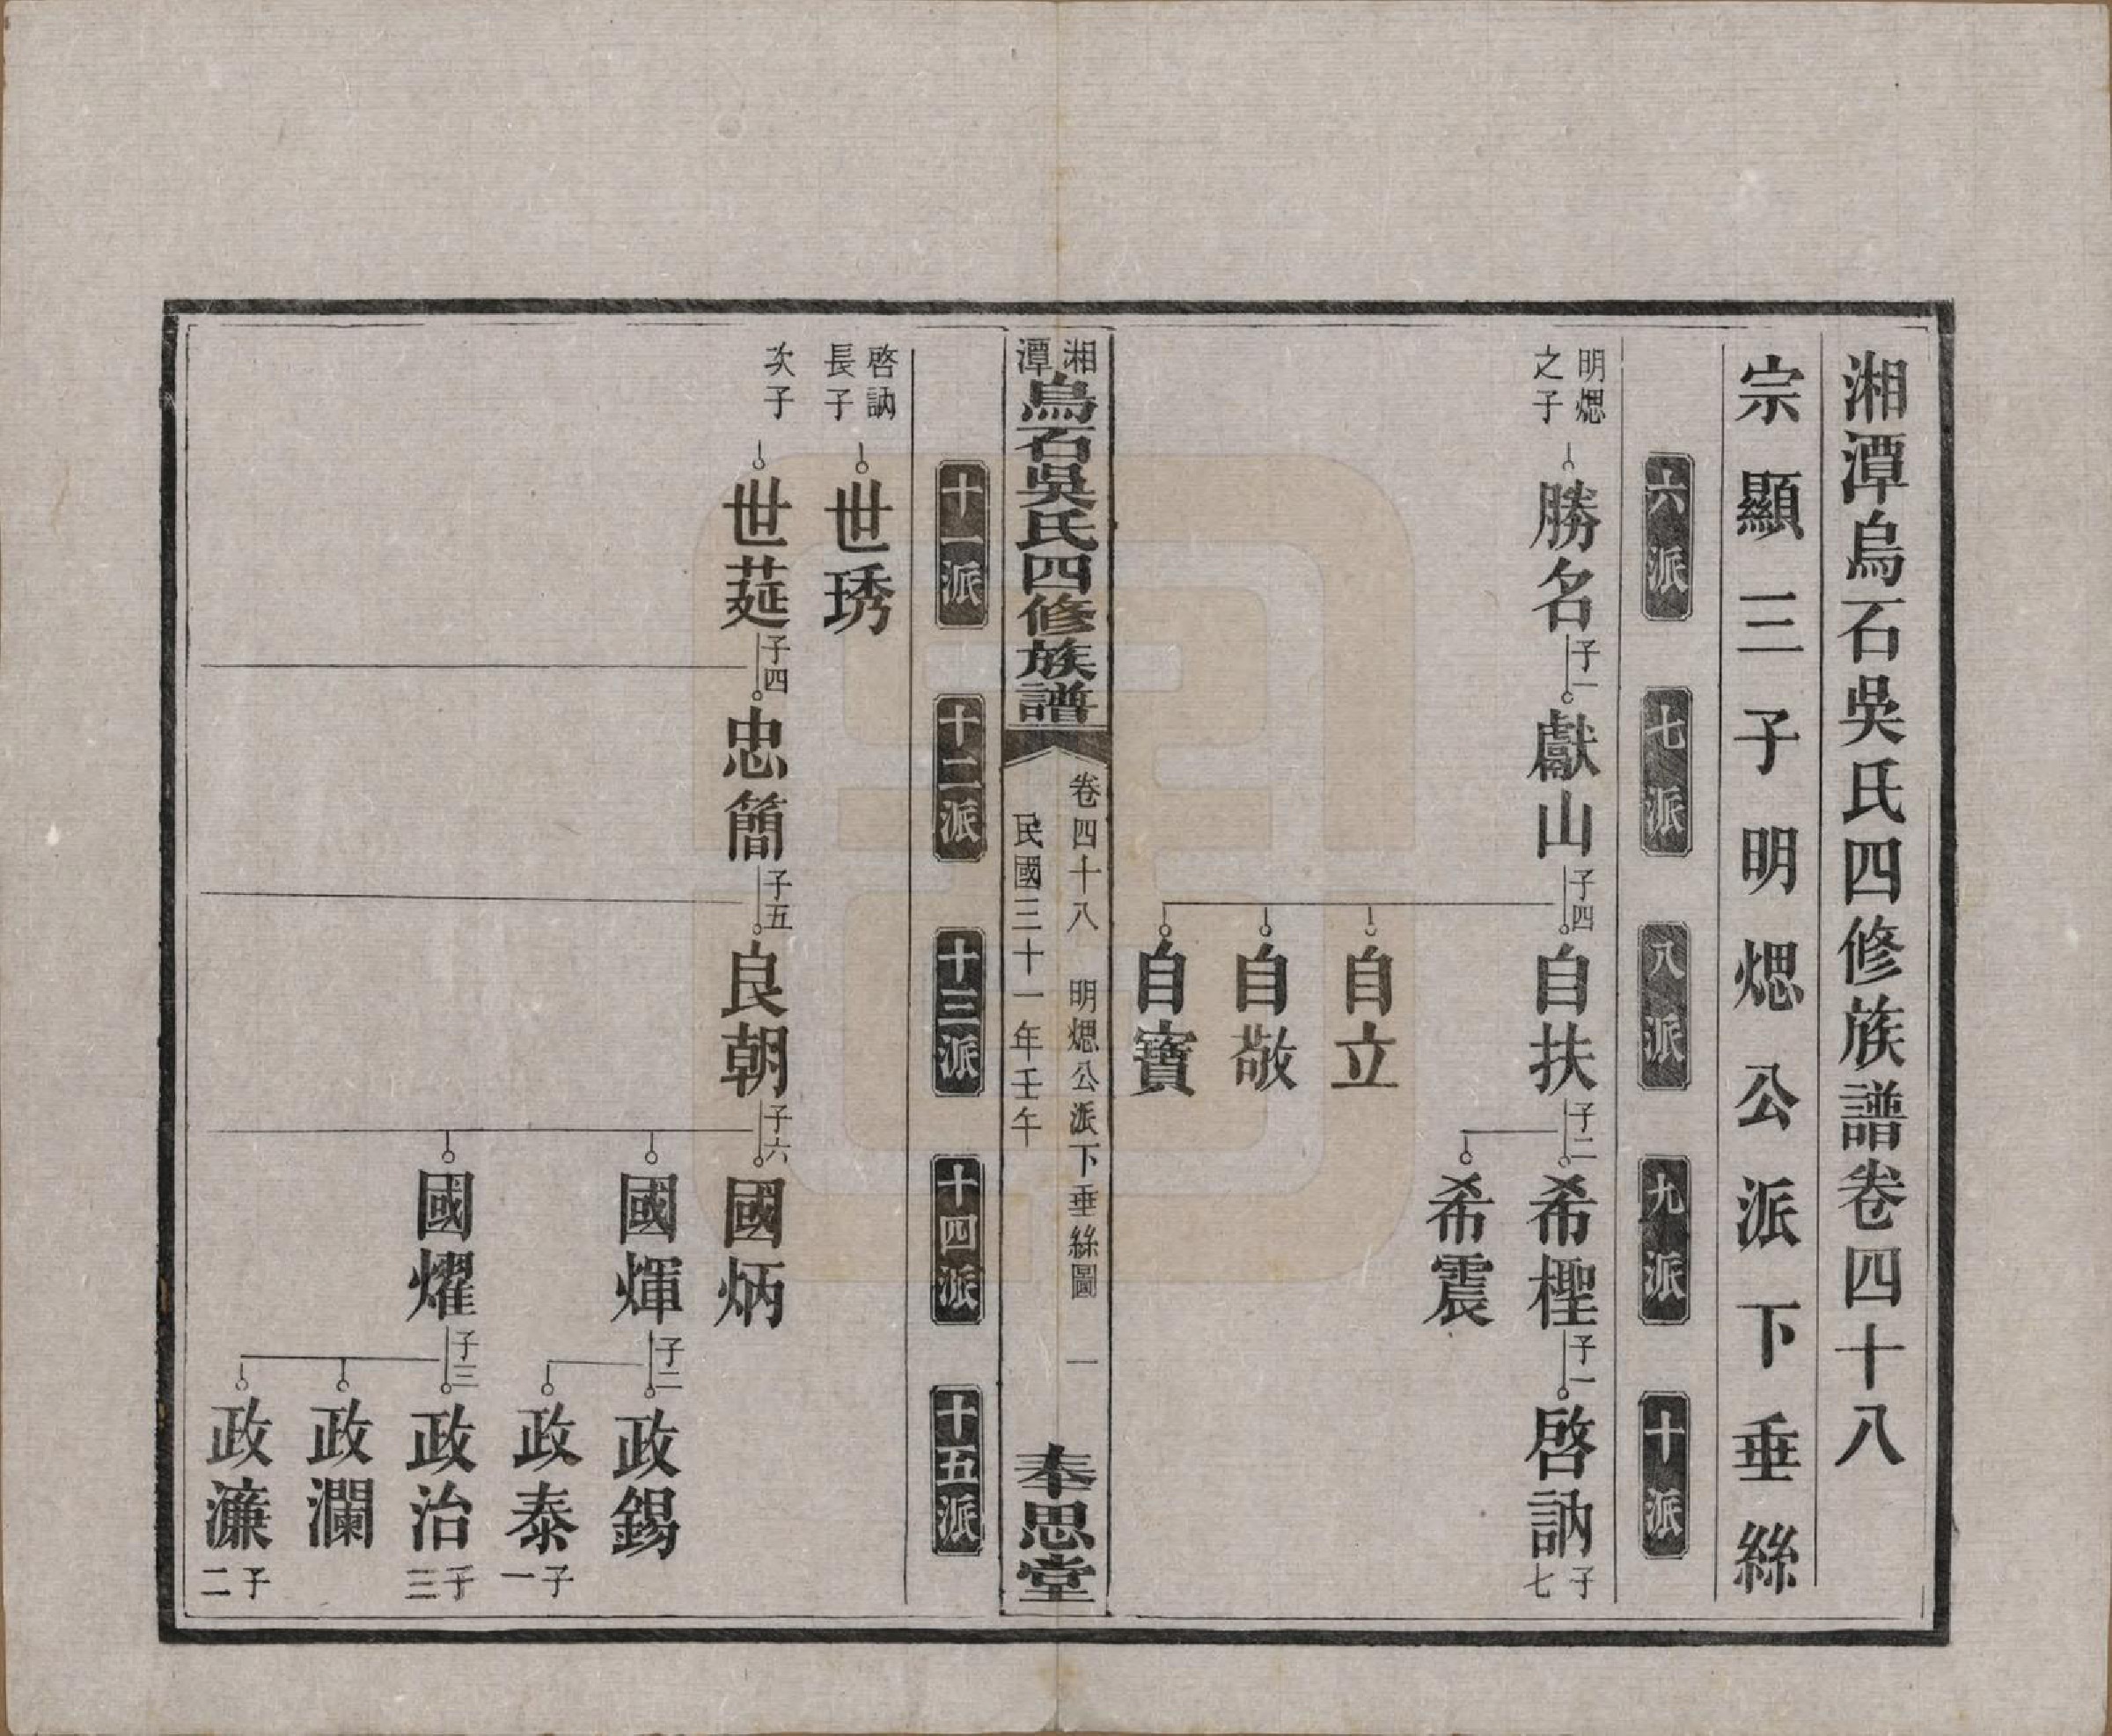 湘潭烏石吳氏四修族譜卷四十八
宗顯三子明煾公派下垂絲
六派
七派
八派
九派
十派
明煾
之子
勝名
子一
獻山
子四
自扶
子二
希檉
子一
啓訥
子七
希震
自立
自敬
自寶
湘潭
烏石吳氏四修族譜
卷四十八 明煾公派下垂絲圖 一
民國三十一年壬午
奉思堂
十一派
十二派
十三派
十四派
十五派
啓訥
長子
世琇
次子
世莚
子四
忠簡
子五
良朝
子六
國炳
國煇
子二
政錫
政泰
子一
國燿
子三
政治
子三
政瀾
政濂
子二